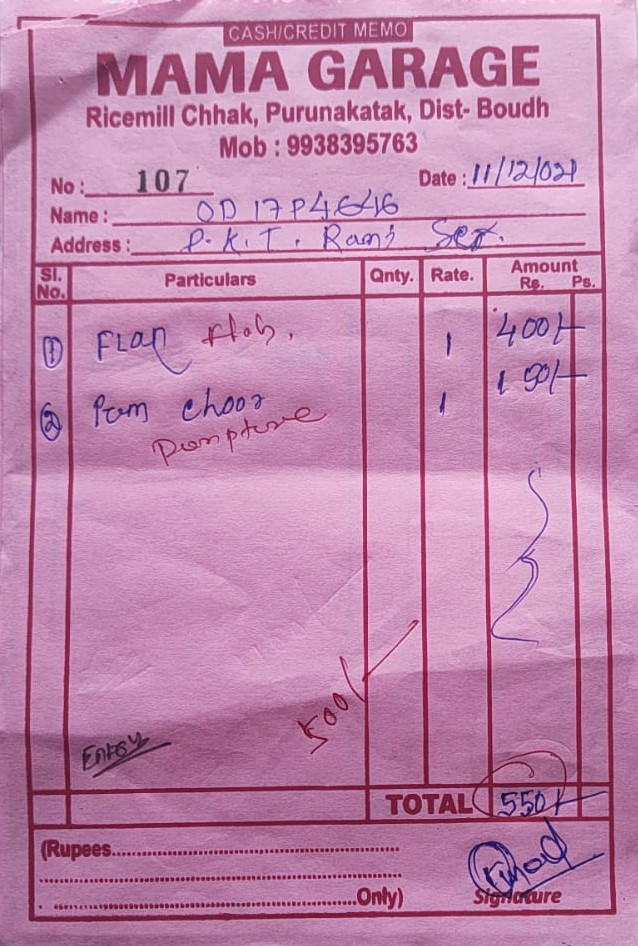 CASH/CREDIT MEMO
MAMA GARAGE
Ricemill Chhak, Purunakatak, Dist- Boudh
Mob : 9938395763
No : 107 Date : 11/12/021
Name : OD 17P4646
Address : P.K.T.
Sl. No. Particulars Qnty. Rate. Amount Rs. Ps.
① FLap 1 400/-
② choor 1 150/-
500/-
Entry
TOTAL 550/-
(Rupees
Only) Signature